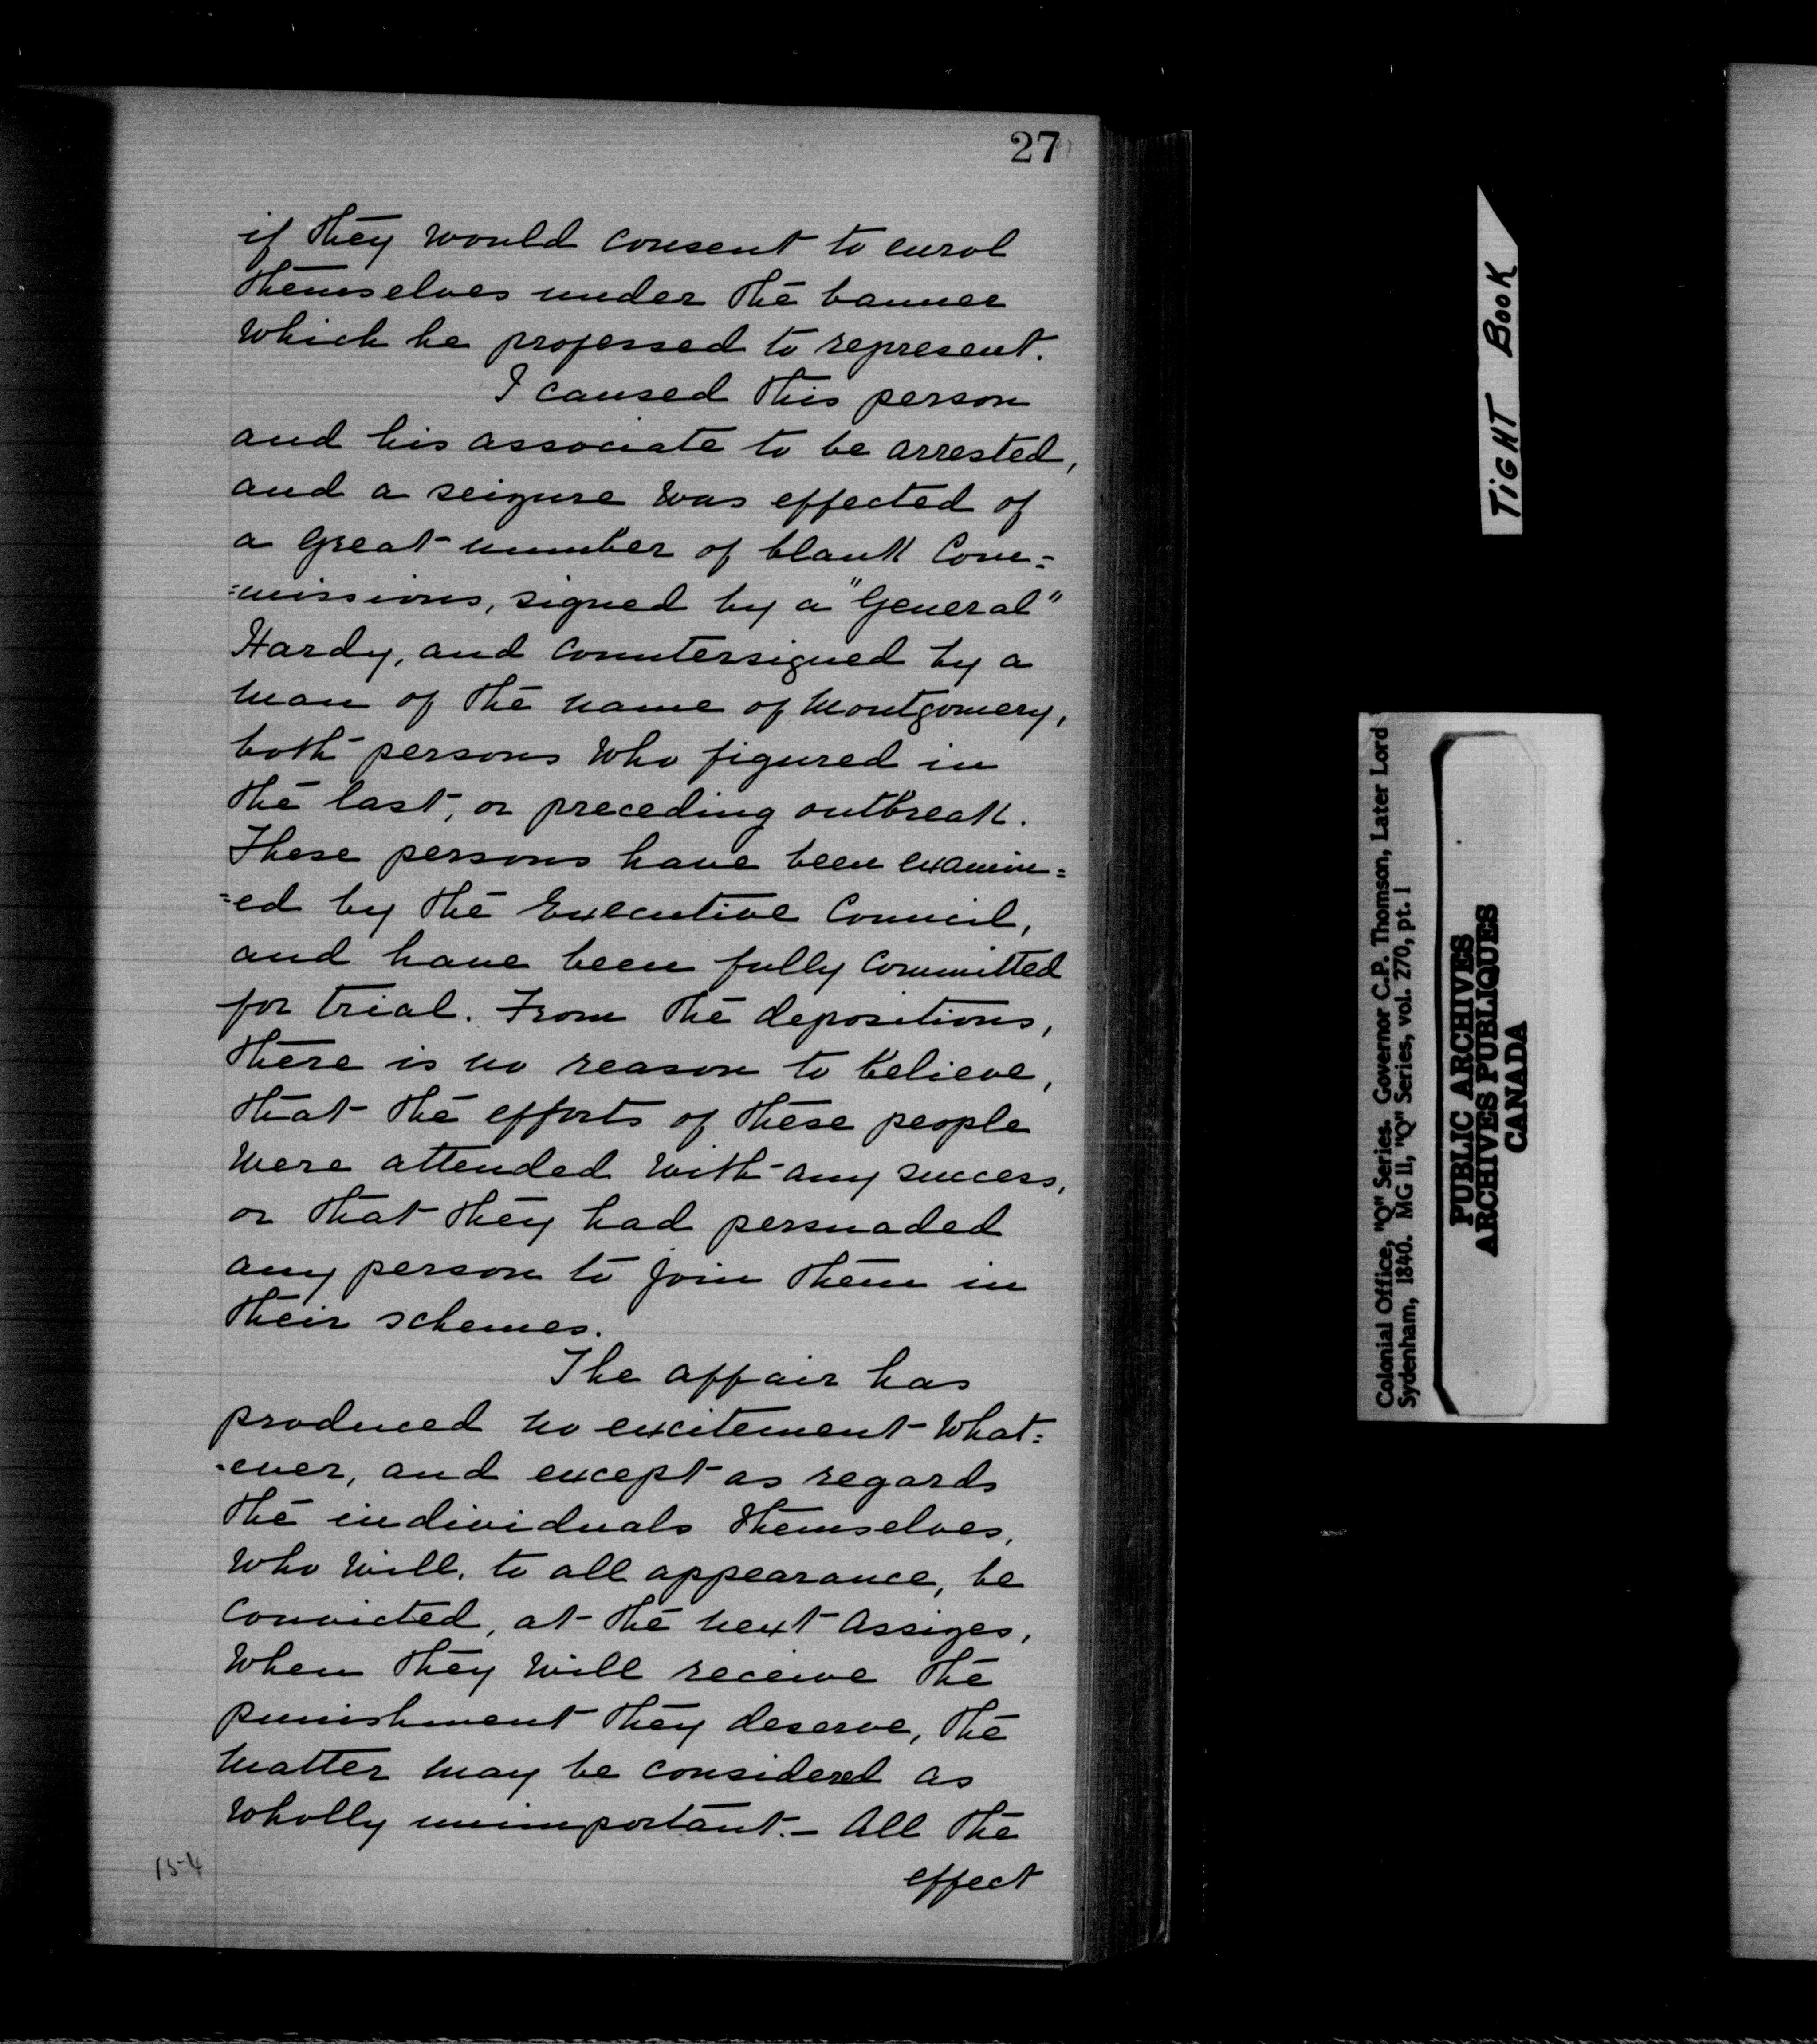 27
if they would consent to enrol
themselves under the banner
which he professed to represent.
I caused this person
and his associate to be arrested,
and a seizure was effected of
a great number of blank Com=
=missions, signed by a "General"
Hardy, and countersigned by a
man of the name of Montgomery,
both persons who figured in
the last, or preceding outbreak.
These persons have been examin=
=ed by the Executive Council,
and have been fully committed
for trial. From the depositions,
there is no reason to believe,
that the efforts of these people
were attended with any success,
or that they had persuaded
any person to join them in
their schemes.
The affair has
produced no excitement what=
=ever, and except as regards
the individuals themselves,
who will, to all appearance, be
convicted, at the next Assizes,
when they will receive the
punishment they deserve, the
matter may be considered as
wholly unimportant. - All the
effect
154
TIGHT BOOK
Colonial Office, "Q" Series. Governor C.P. Thomson, Later Lord
Sydenham, 1840. MG 11, "Q" Series, vol. 270, pt. 1
PUBLIC ARCHIVES
ARCHIVES PUBLIQUES
CANADA